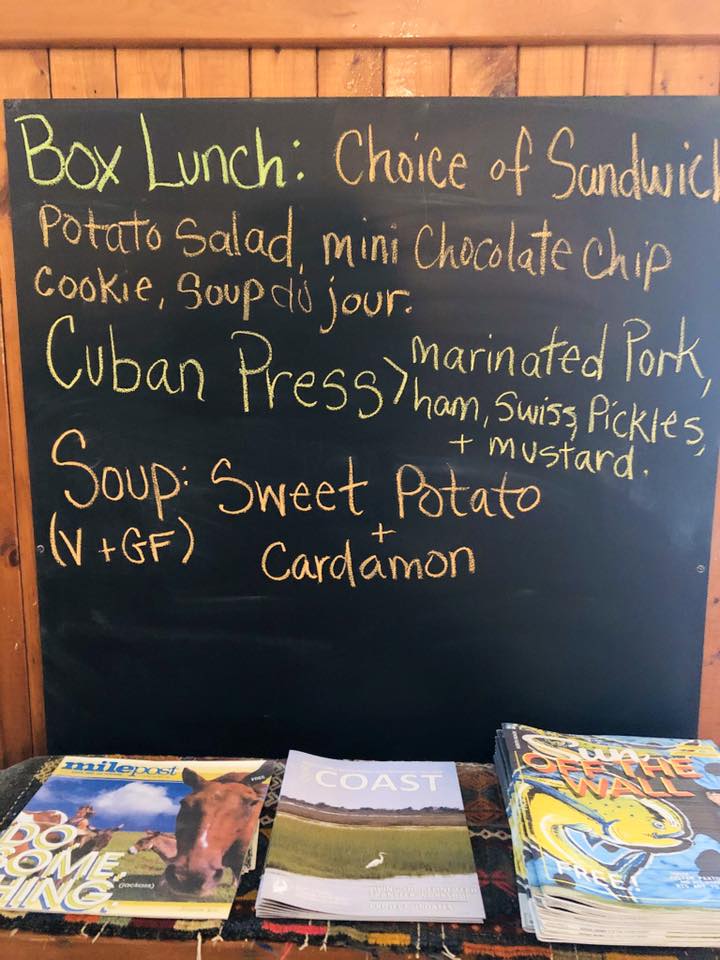 Box Lunch: Choice of Sandwich
Potato Salad, mini Chocolate Chip
cookie, Soup du jour.
Cuban Press > marinated Pork,
ham, Swiss, Pickles,
+ mustard.
Soup: Sweet Potato
(V + GF)
+
Cardamon
milepost
FREE
DO
SOME
THING.
COAST
PROJECT UPDATES
OFF THE
WALL
FREE!